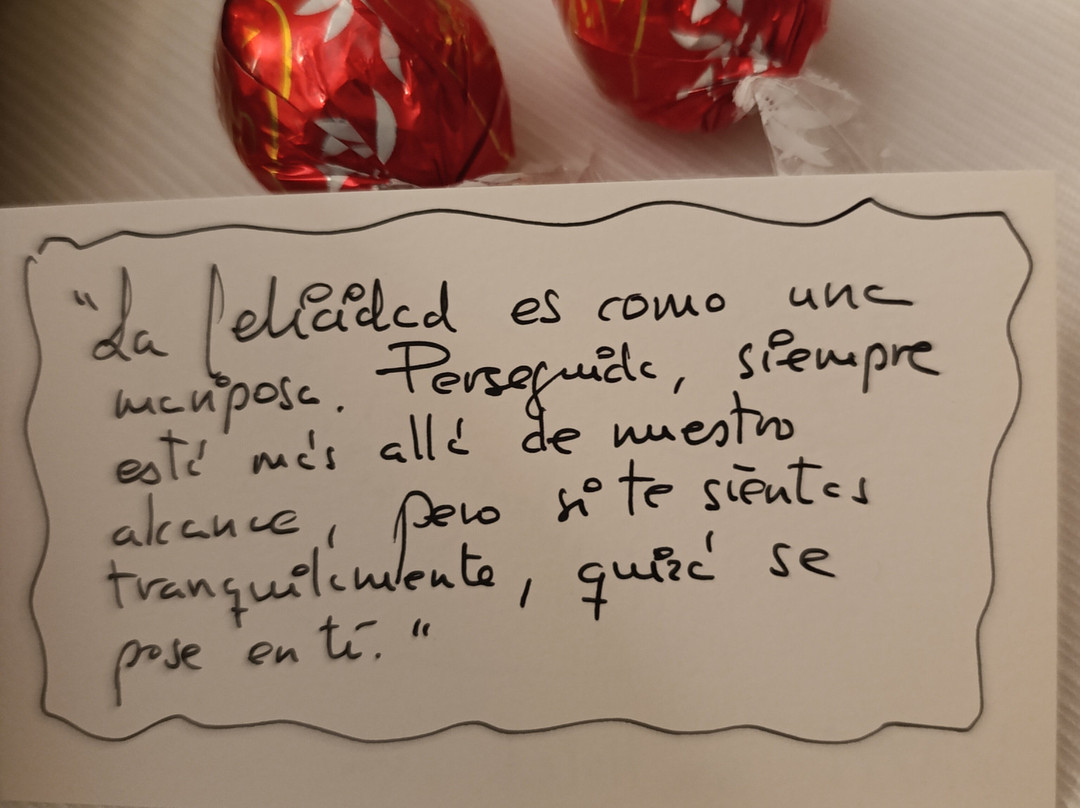 "La felicidad es como una
mariposa. Perseguida, siempre
está más allá de nuestro
alcance, pero si te sientas
tranquilamente, quizá se
pose en tí."